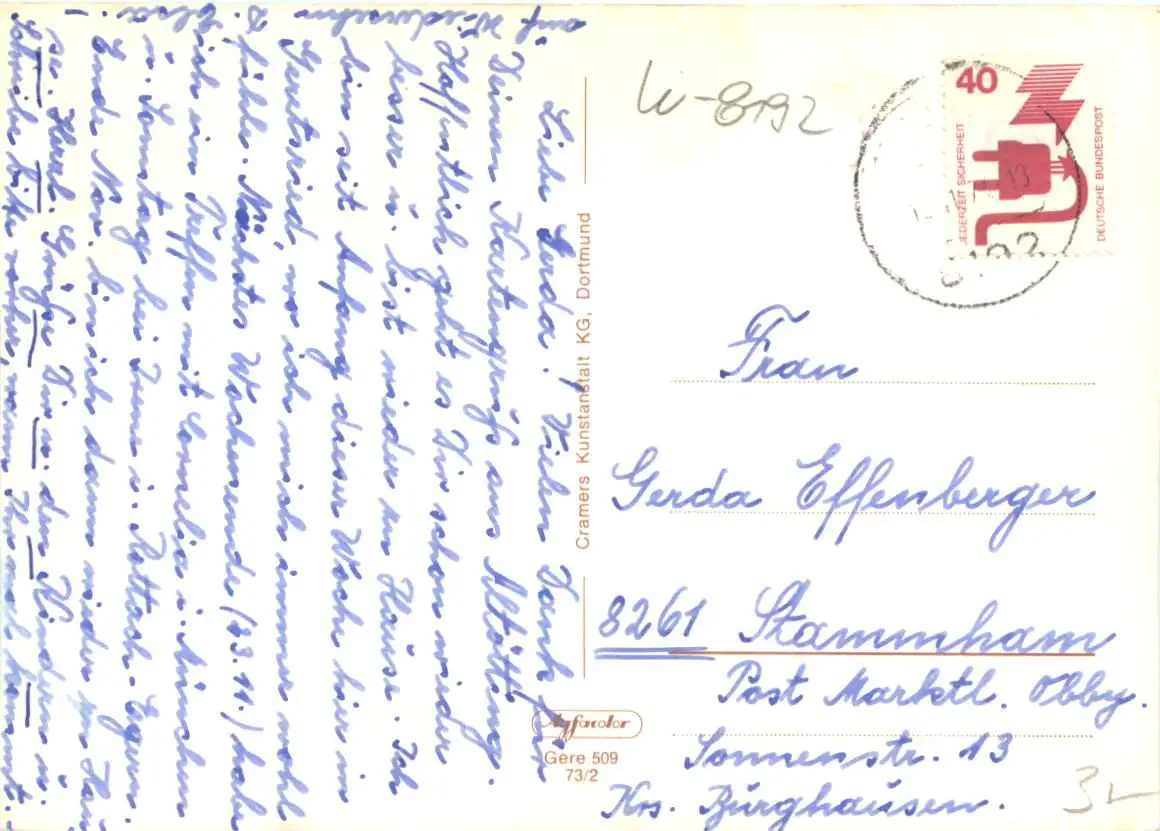 Liebe Gerda! Vielen Dank für
Deinen Kartengruß aus Altötting.
Hoffentlich geht es Dir schon wieder
besser u. bist wieder zu Hause. Ich
bin seit Anfang dieser Woche hier in
Geretsried, wo ich mich immer wohl
fühle. Nächstes Wochenende (3.11.) habe
ich ein Treffen mit Cornelia i. München
u. Sonntag bei Irene i. Rottach-Egern.
Ende Nov. bin ich dann wieder zu Hau
se. Herzl. Grüße Dir u. den Kindern u.
Schreibe bitte vorher, wann Ihr mal kommt.
auf Wiedersehn
Cramers Kunstanstalt KG, Dortmund
Agfacolor
Gere 509
73/2
W-8192
40
JEDERZEIT SICHERHEIT
DEUTSCHE BUNDESPOST
13
8192
Frau
Gerda Effenberger
8261 Stammham
Post Marktl. Obby.
Sonnenstr. 13
Krs. Burghausen.